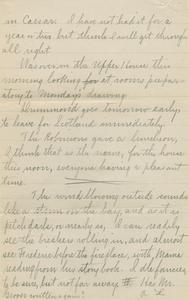 in Caesar. I have not had it for a
year – this but think I will get through
all right.
Was over in the Upper House this
morning looking for at rooms prepar-
atory to Monday's drawing.
Drummond goes tomorrow early,
to leave for Scotland immediately.
The Robinsons gave a luncheon,
I think that is the name, for the house
this noon, everyone having a pleasant
time.
The wind blowing outside sounds
like a storm on the bay, and as it is
pitch dark, or nearly so, I can readily
see the breakers rolling in, and almost
see Frederic before the fireplace, with Mama
reading from his story book. I also fancy
to be sure, but not far away. Has Mr.
Brown written again?